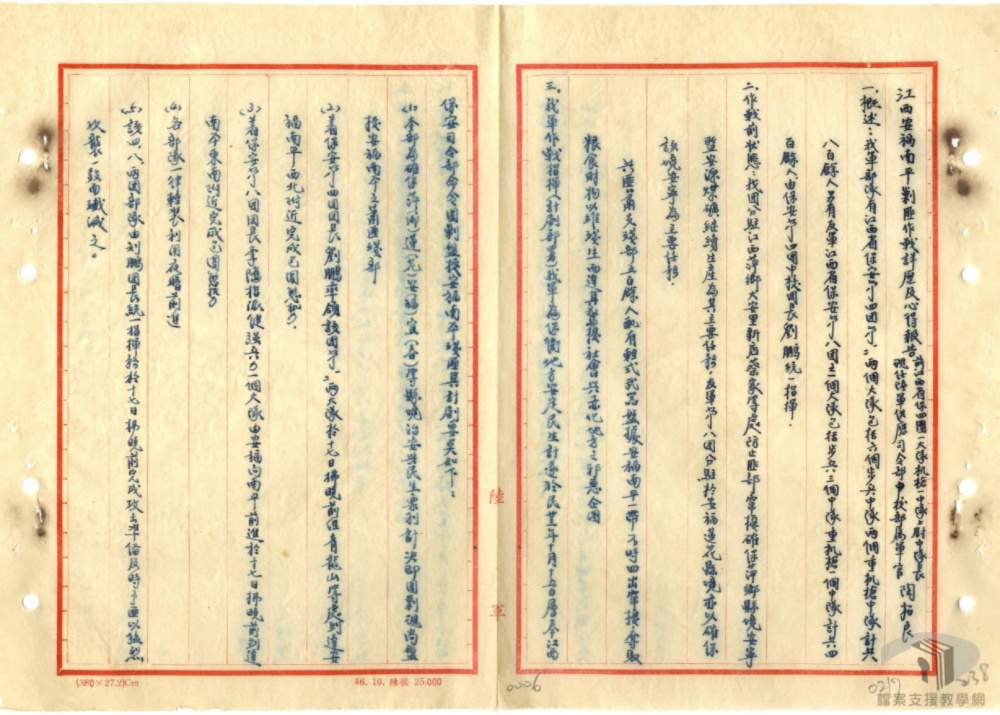 江西安福南平剿匪作戰詳歷及心得報告
前江西省保四團一大隊机槍一中隊上尉中隊長
現任陸軍供應司令部中校部屬軍官 陶柏良
一、概述：我軍部隊有江西省保安第四團第一、二兩個大隊包括六個步兵中隊兩個重机槍中隊計共
八百餘人另有友軍江西省保安第八團之一個大隊包括步兵三個中隊重机槍一個中隊計共四
百餘人由保安第四團中校團長劉鵬統一指揮.
二、作戰前狀態：我團分駐江西萍鄉大安里新店等處防止匪部竄擾確保萍鄉縣境安寧
暨安源煤礦繼續生產為其主要任務，友軍第八團分駐於安福蓮花縣境亦以確保
該境安寧為主要任務.
共匪蕭支殘部五百餘人配有輕式武器盤據安福南平一帶不時四出竄擾，奪取
糧食財物以維殘生而遂其擾社會與赤化地方之邪惡企圖
三、我軍作戰指揮(計劃部署)我軍為保衛地方安定民生計遂於民廿三年十月十五日層奉江西
保安司令部命令圍剿盤據安福南平殘匪其計劃要點如下：
(1)本部為確保萍(鄉)蓮(花)安(福)宜(春)等縣境治安與民生眾利計決即圍剿現尚盤
據安福南平之蕭匪殘部
(2)着保安第四團團長劉鵬率領該團第一、二兩大隊於十七日拂曉前經青龍山等處到達安
福南平西北附近完成包圍態勢.
(3)着保安第八團團長李隆指派健強兵力一個大隊由安福向南平前進於十七日拂曉前到達
南平東南附近完成包圍態勢
(4)各部隊一律輕裝利用夜暗前進
(5)該四、八兩團部隊由劉鵬團長統一指揮務於十七日拂曉前完成攻擊準備及時予匪以猛烈
攻襲一鼓而殲滅之。
陸 軍
(38.0×27.2)Cm
46. 10. 陸供 25.000
0006
0217
038
檔案支援教學網